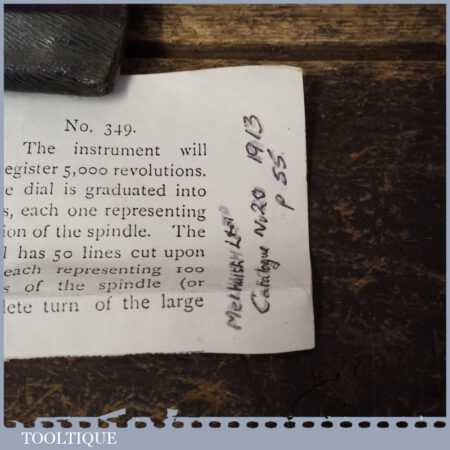 No. 349.
The instrument will
egister 5,000 revolutions.
e dial is graduated into
s, each one representing
ion of the spindle. The
l has 50 lines cut upon
each representing 100
s of the spindle (or
lete turn of the large
Catalogue No 20 1913
P 55.
TOOLTIQUE